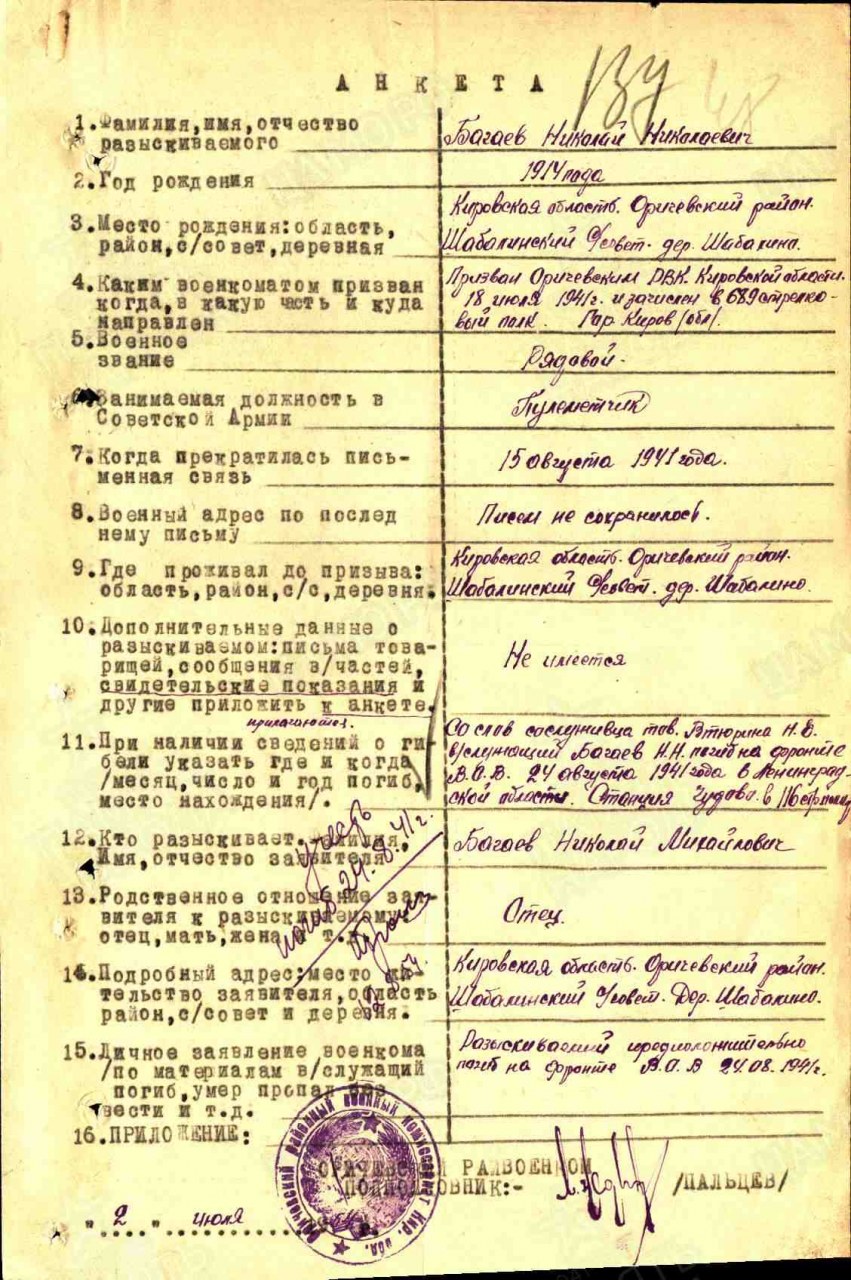 АНКЕТА
1. Фамилия, имя, отчество
разыскиваемого
Багаев Николай Николаевич
2. Год рождения
1914 года
3. Место рождения: область,
район, с/совет, деревная
Кировская область. Оричевский район.
Шабалинский С/совет. дер. Шабалино.
4. Каким военкоматом призван
когда, в какую часть и куда
направлен
Призван Оричевским РВК. Кировской области.
18 июля 1941 г. и зачислен в 689 стрелко-
вый полк. Гор. Киров /обл/.
5. Военное
звание
Рядовой.
6. Занимаемая должность в
Советской Армии
Пулеметчик
7. Когда прекратилась пись-
менная связь
15 августа 1941 года.
8. Военный адрес по послед
нему письму
Писем не сохранилось.
9. Где проживал до призыва:
область, район, с/с, деревня.
Кировская область. Оричевский район.
Шабалинский С/совет. дер. Шабалино.
10. Дополнительные данные о
разыскиваемом: письма това-
рищей, сообщения в/частей,
свидетельские показания и
другие приложить к анкете.
прилагаются.
Не имеется
11. При наличии сведений о ги-
бели указать где и когда
/месяц, число и год погиб,
место нахождения/.
Со слов сослуживца тов. Втюрина Н.Е.
в/служащий Багаев Н.Н. погиб на фронте
В.О.В. 24 августа 1941 года в Ленинград-
ской области. Станция Чудово.
12. Кто разыскивает. Фамилия,
Имя, отчество заявителя
Багаев Николай Михайлович
погиб 24.8.41 г.
13. Родственное отношение зая-
вителя к разыскиваемому
отец, мать, жена и т.д.
Отец.
14. Подробный адрес: место жи-
тельство заявителя, область
район, с/совет и деревня.
Кировская область. Оричевский район.
Шабалинский С/совет. Дер. Шабалино.
15. Личное заявление военкома
/по материалам в/служащий
погиб, умер пропал без
вести и т.д.
Разыскиваемый предположительно
погиб на фронте В.О.В 24.08.1941г.
16. ПРИЛОЖЕНИЕ:
ОРИЧЕВСКИЙ РАЙВОЕНКОМ
ПОДПОЛКОВНИК:- /ПАЛЬЦЕВ/
"2" июля
Оричевский районный военный комиссариат Кир. обл.